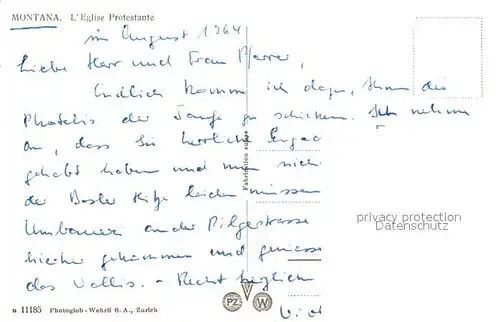 MONTANA. L'Eglise Protestante
im August 1964
Liebe Herr und Frau Pfarrer,
Endlich komme ich dazu, Ihnen die
Photolis der Taufe zu schicken. Ich nehme
an, dass Sie herrliche
gehabt haben und nun nicht
der Basler Hitze leiden müssen
an der Pilgerstrasse
hierher gekommen und geniesse
das Wallis. - Recht herzlich
Fabrication suisse
privacy protection
Datenschutz
B 11185 Photoglob-Wehrli S. A., Zurich
PZ W